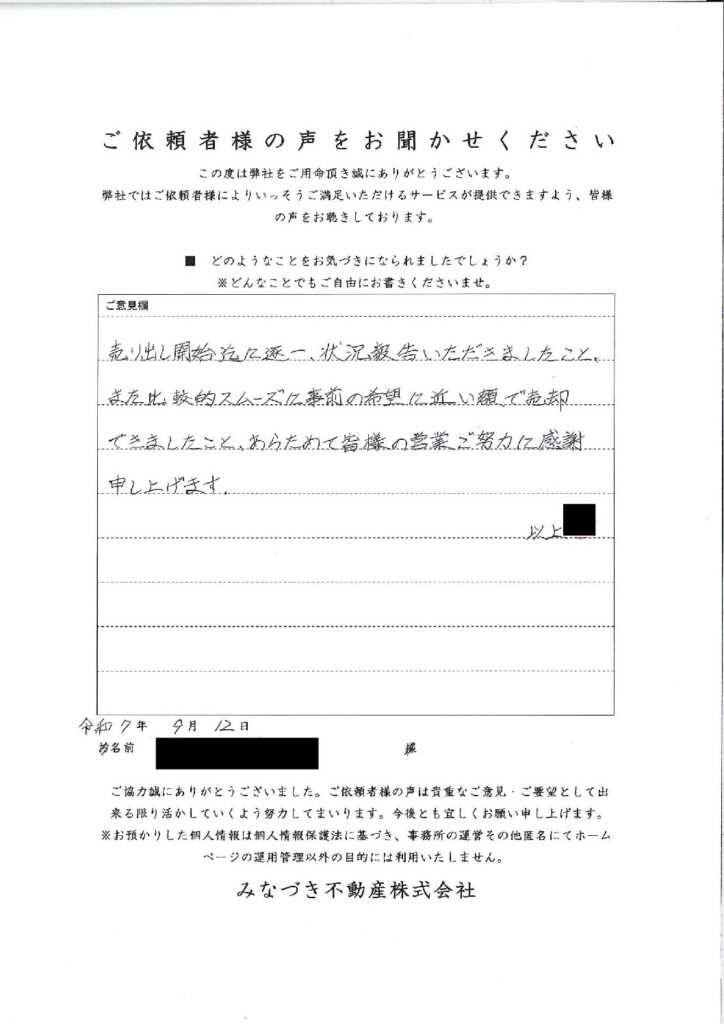 ご依頼者様の声をお聞かせください
この度は弊社をご用命頂き誠にありがとうございます。
弊社ではご依頼者様によりいっそうご満足いただけるサービスが提供できますよう、皆様
の声をお聴きしております。
■ どのようなことをお気づきになられましたでしょうか？
※どんなことでもご自由にお書きくださいませ。
ご意見欄
売り出し開始迄に逐一、状況報告いただきましたこと、
また比較的スムーズに事前の希望に近い額で売却
できましたこと、あらためて皆様の営業ご努力に感謝
申し上げます.
以上
令和7年 9月 12日
お名前 様
ご協力誠にありがとうございました。ご依頼者様の声は貴重なご意見・ご要望として出
来る限り活かしていくよう努力してまいります。今後とも宜しくお願い申し上げます。
※お預かりした個人情報は個人情報保護法に基づき、事務所の運営その他匿名にてホーム
ページの運用管理以外の目的には利用いたしません。
みなづき不動産株式会社